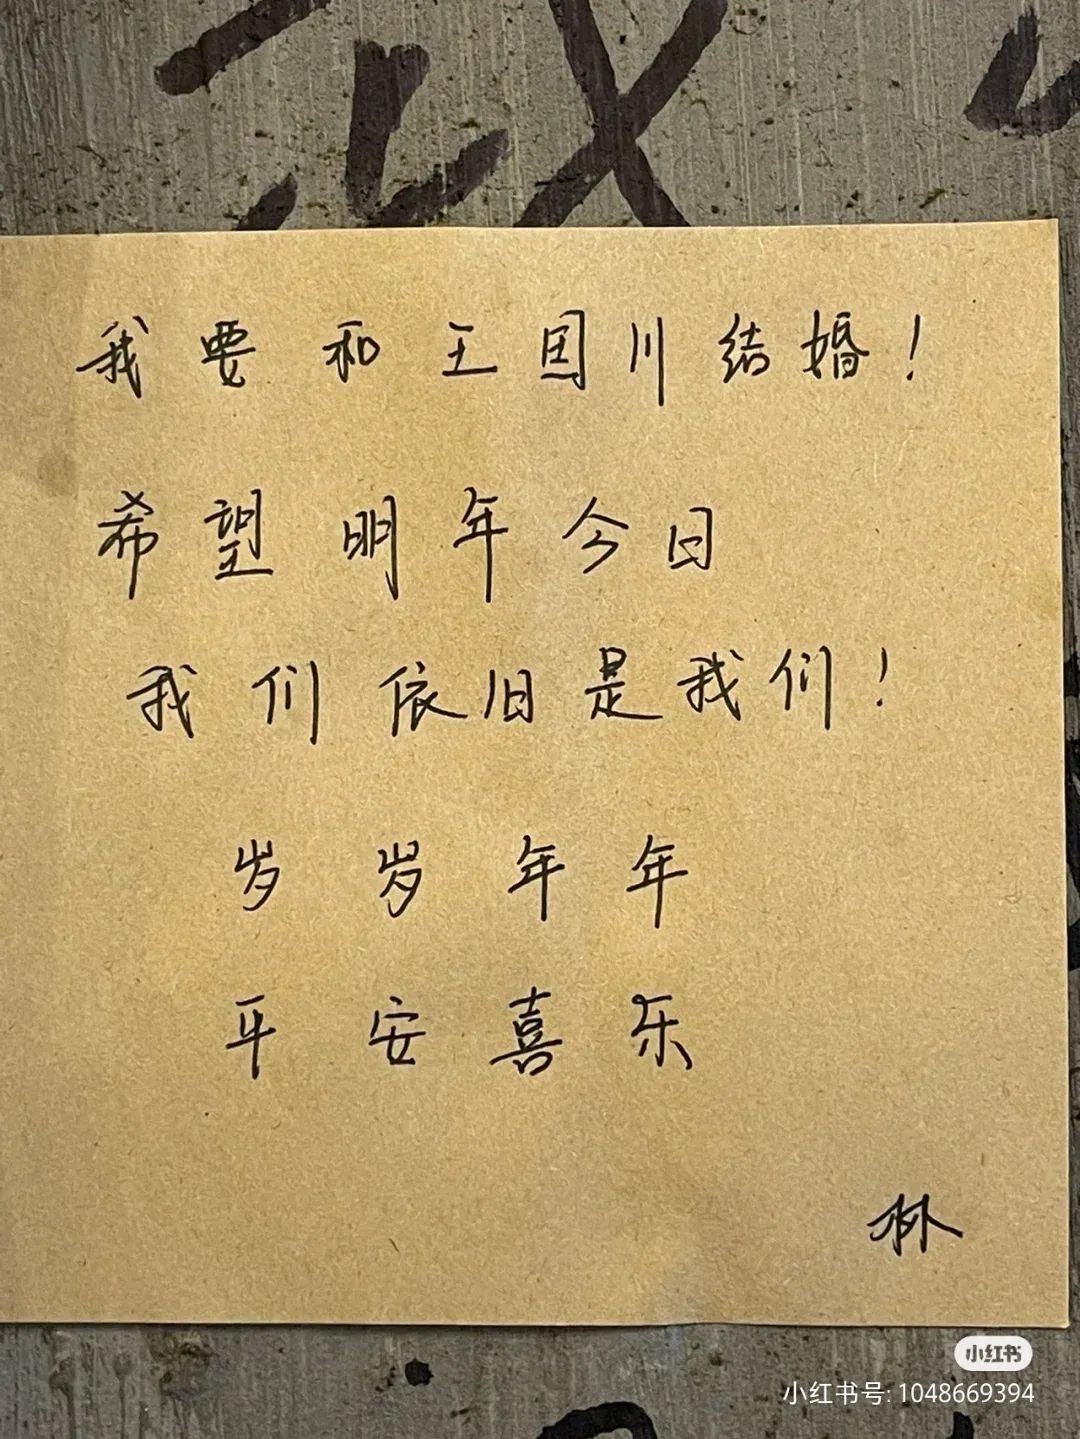 我要和王国川结婚!
希望明年今日
我们依旧是我们!
岁岁年年
平安喜乐
林
小红书
小红书号: 1048669394